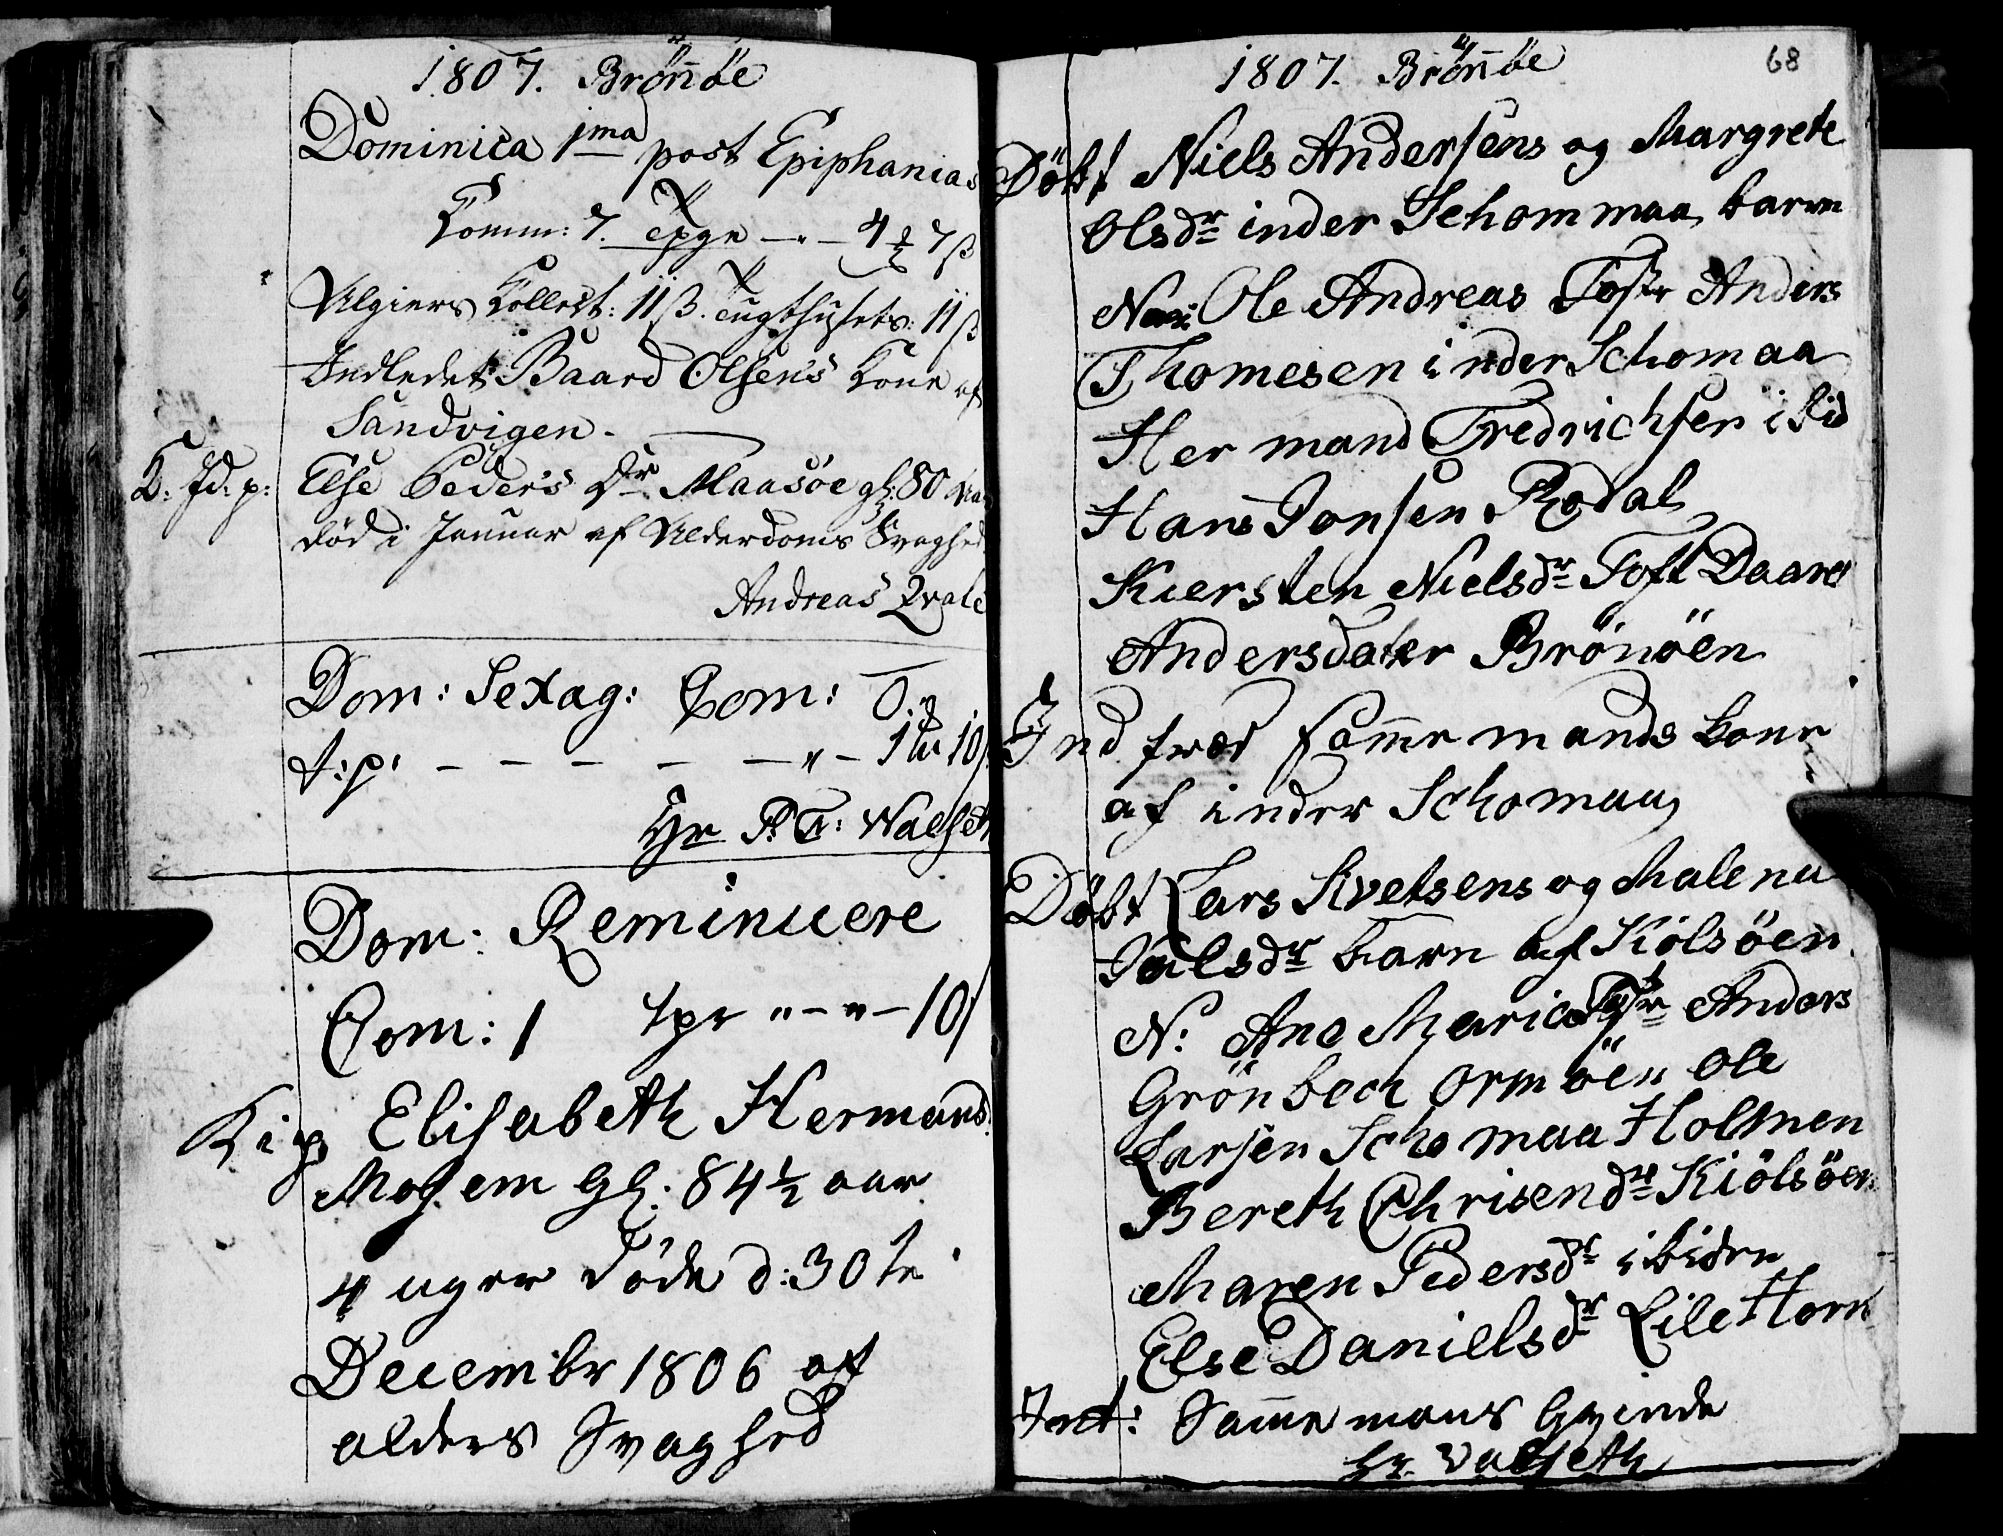 1807. Brønöe
Dominica 1ma post Epiphanias
Komm: 7.
Algiers Collect: 11 ß. Tugthusets: 11 ß
Indledet Baard Olsens Kone af
Sandvigen.
K: Jd: p: Else Peders Dr Maasöe gl: 80 Aar
död i Januar af Alderdoms Svaghed
Andreas Qvale
Dom: Sexag: Com: 0
t:p: - - - - - " - 1 10
Hr P. T: Walseth
Dom: Reminuere
Com: 1 tpr " - " - 10
K i p Elisabeth Hermands
Mosem Gl: 84 1/2 aar
4 uger döde d: 30te
Decembr 1806 af
alders Svaghed
1807. Brönöe 68
Döbt Niels Andersens og Margrete
Olsdr inder Schommaa barn
Na: Ole Andreas Fostr Anders
Thomesen inder Schomaa
Hermand Fredrichsen ibid
Hans Jonsen Rodal
Kiersten Nielsdr Toft Daare
Andersdater Brönöen
Ind traad samme mands kone
af inder Schomaa
Döbt Lars Kvetsens og Malena
Palsdr barn af Kölsöen
N: Ane Maria Fostr Anders
Grönbech Ormöen Ole
Larsen Schomaa Holmen
Bereth Chrisendr Kiölsöen
Maren Pedersdr ibiden
Else Danielsdr Lile Horn
Int: Samme mans Qvinde
Hr. Valseth